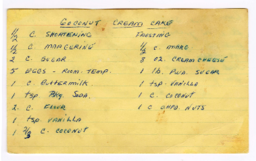 COCONUT CREAM CAKE
1/2 C. SHORTENING
1/2 C. MARGARINE
2 C. SUGAR
5 EGGS - ROOM TEMP.
1 C. Buttermilk
1 tsp. SODA
2 C. FLOUR
1 tsp. VANILLA
1 C. COCONUT
FROSTING
1/2 C. MARG
8 OZ. CREAM CHEESE
1 lb. Pwd. SUGAR
1 tsp. VANILLA
1 C. COCONUT
1 C. NUTS